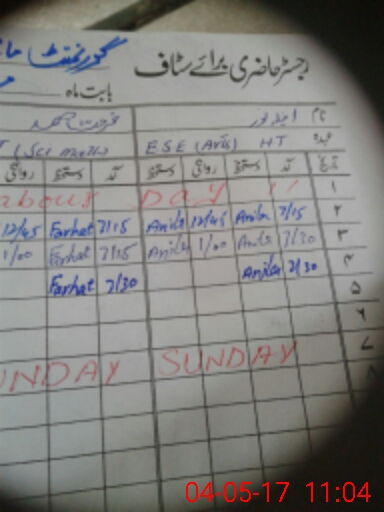 رجسٹر حاضری برائے سٹاف
گورنمنٹ
بابت ماہ
نام
عہدہ ESE (Arts) HT
تاریخ آمد دستخط روانگی دستخط آمد دستخط روانگی
۱ Labour Day !!
۲ 7/15 Anila 12/45 Anila 7/15 Farhat 12/45
۳ 7/30 Anila 1/00 Anila 7/15 Farhat 1/00
۴ 7/30 Anila 7/30 Farhat
۵
۶
۷ SUNDAY SUNDAY
۸
04-05-17 11:04